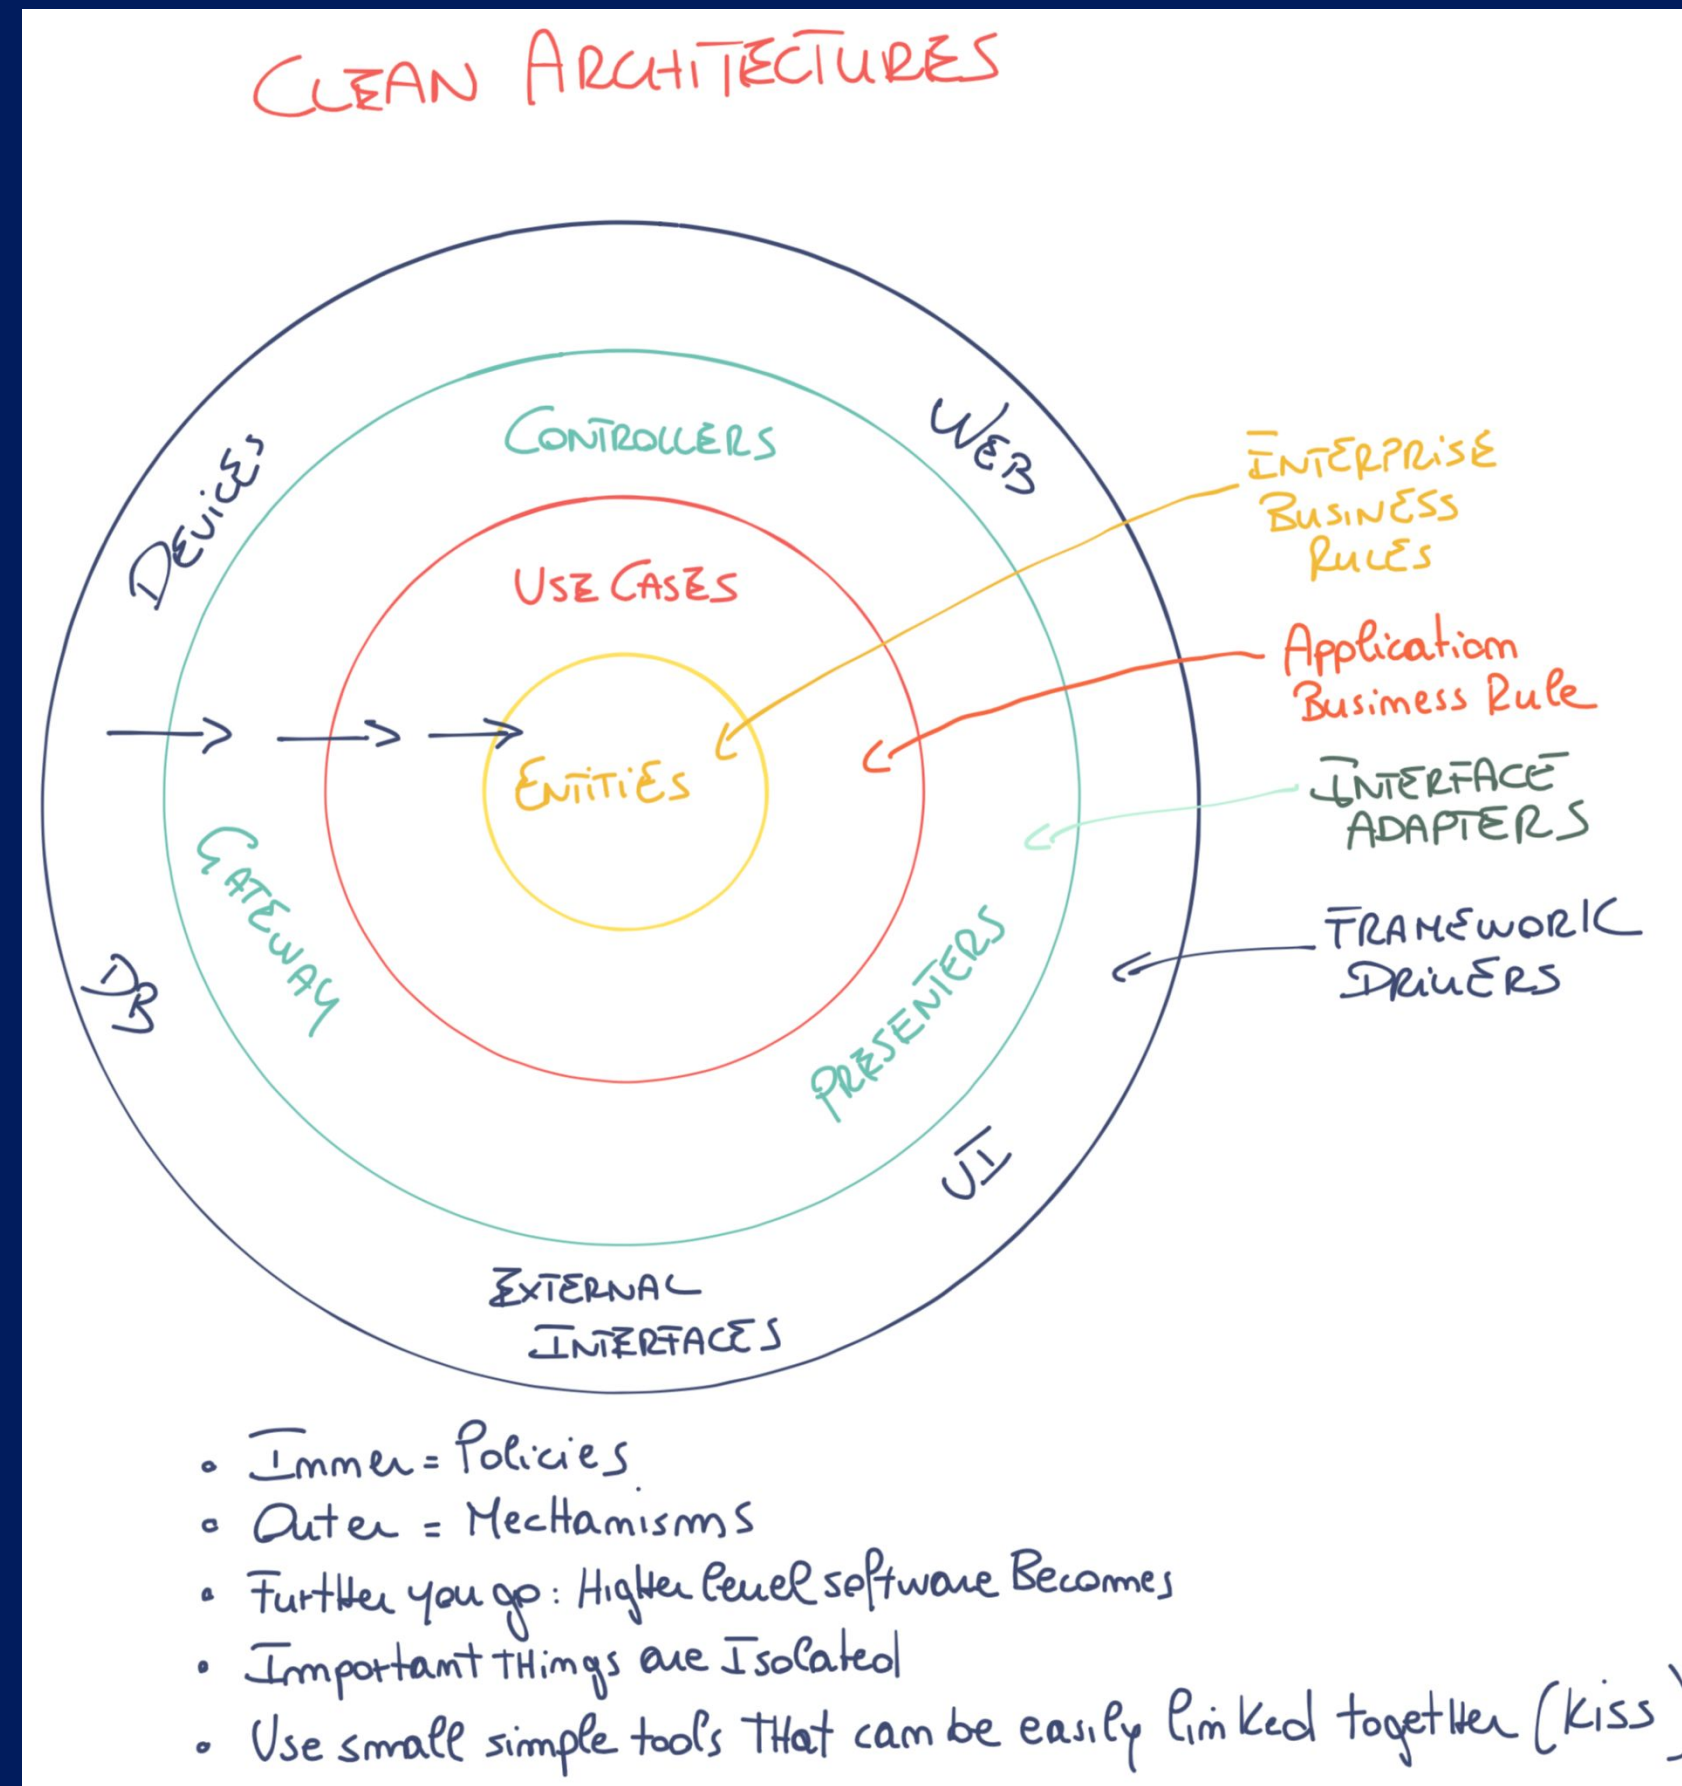 CLEAN ARCHITECTURES
Devices
CONTROLLERS
WEB
USE CASES
ENTITIES
GATEWAY
DB
PRESENTERS
UI
EXTERNAL
INTERFACES
ENTERPRISE
BUSINESS
RULES
Application
Business Rule
INTERFACE
ADAPTERS
FRAMEWORK
DRIVERS
• Inner = Policies
• Outer = Mechanisms
• Further you go: Higher level software Becomes
• Important things are Isolated
• Use small simple tools that can be easily linked together (kiss)